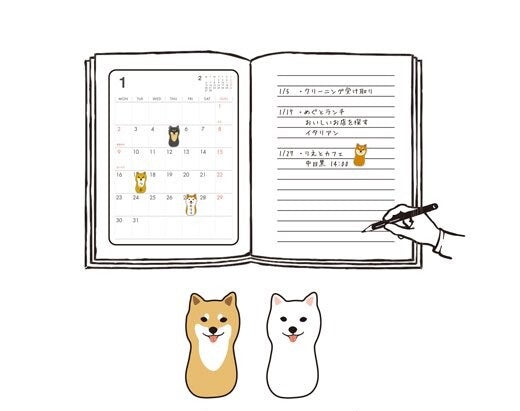 1
2
MON TUE WED THU FRI SAT SUN
1
2 3 4 5 6 7 8
9 10 11 12 13 14 15
16 17 18 19 20 21 22
23 24 25 26 27 28 29
30 31
1/5 ・クリーニング受け取り
1/19 ・めぐとランチ
おいしいお店を探す
イタリアン
1/27 ・りえとカフェ
中目黒 14:00